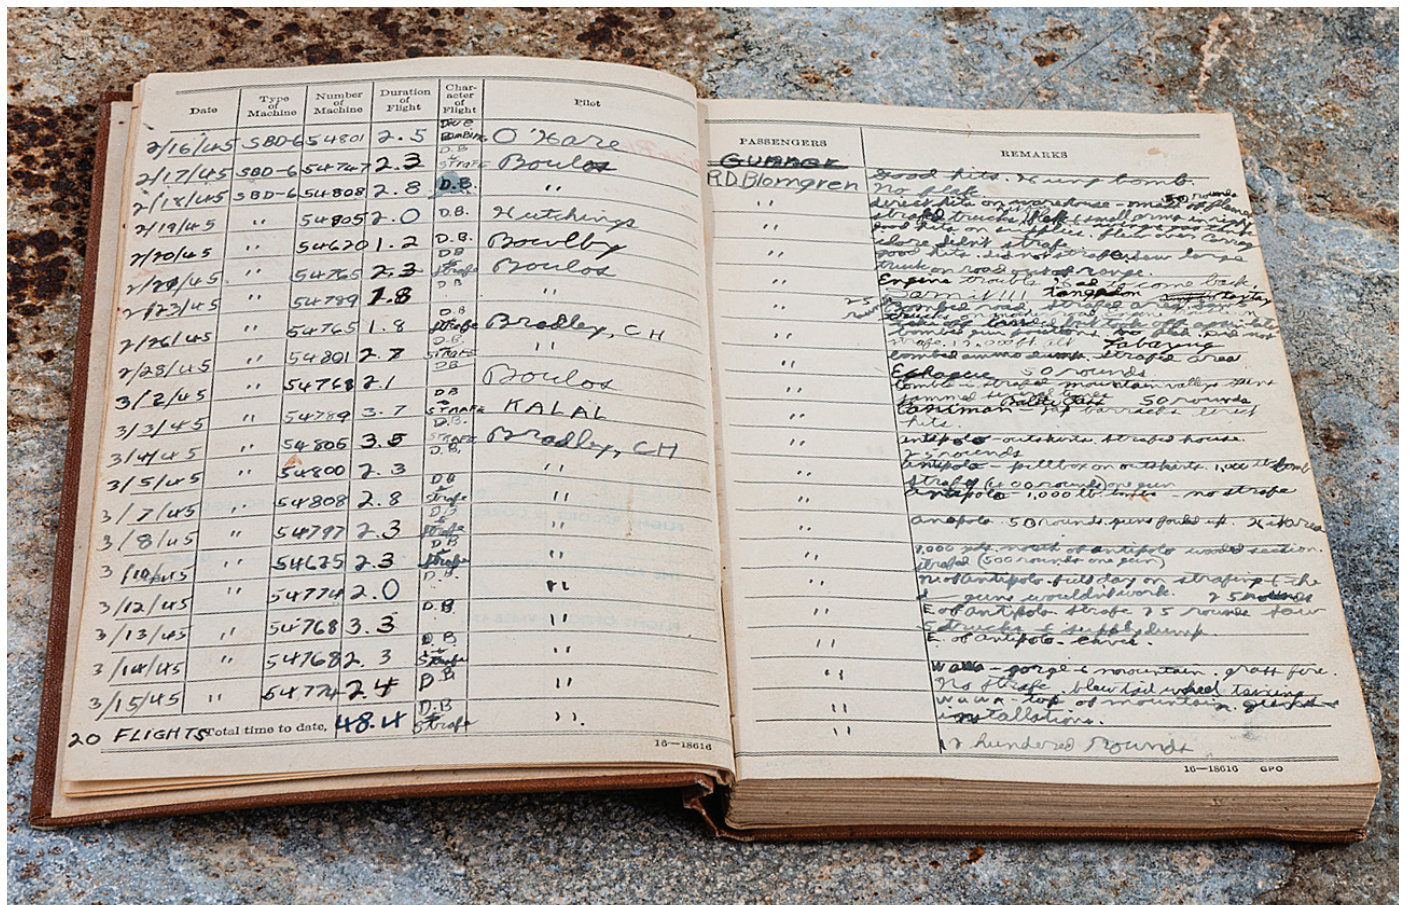 Date Type of Machine Number of Machine Duration of Flight Character of Flight Pilot
2/16/45 SBD-6 54801 2.5 DIVE BOMBING O'Hare
2/17/45 SBD-6 54767 2.3 D.B. & STRAFE Boulos
2/18/45 SBD-6 54808 2.8 D.B. "
2/19/45 " 54805 2.0 D.B. Hutchings
2/20/45 " 54620 1.2 D.B. Bowlby
" 54765 2.3 DB & strafe Boulos
2/23/45 " 54789 1.8 DB "
2/26/45 " 54765 1.8 D.B & strafe Bradley, CH
2/28/45 " 54801 2.7 D.B. & STRAFE "
3/2/45 " 54768 2.1 DB Boulos
3/3/45 " 54789 3.7 DB & STRAFE KALAL
3/4/45 " 54806 3.5 D.B. STRAFE Bradley, CH
3/5/45 " 54800 2.3 D.B. "
3/7/45 " 54808 2.8 DB & strafe "
3/8/45 " 54797 2.3 D.B & strafe "
3/10/45 " 54625 2.3 D.B & strafe "
3/12/45 " 54774 2.0 D.B. "
3/13/45 " 54768 3.3 D.B. "
3/14/45 " 54768 2.3 D.B & Strafe "
3/15/45 " 54774 2.4 D.B "
20 FLIGHTS Total time to date, 48.4 D.B & Strafe "
16—18616
PASSENGERS REMARKS
GUNNER
R.D. Blomgren
Good hits. Hung bomb.
No flak
50 rounds
direct hits on warehouse
strafed trucks small arms
good hits on supplies. flew over
close didn't strafe.
good hits. did not strafe, saw large
truck on road out of range.
Engine trouble had to come back.
Darn it!!!
25
strafe 12,000 ft alt
bombed ammo dump. strafed area
Echague 50 rounds
bombed & strafed mountain valley
jammed 50 rounds
barracks direct
hits.
antipolo - outskirts. strafed house.
25 rounds
antipolo - pillbox on outskirts. 1,000 lb bomb
strafed (600 rounds) one gun
antipolo - 1,000 lb. - no strafe
50 rounds. guns fouled up. Hit area
1,000 yds. north of antipolo wooded section.
strafed (500 rounds one gun)
N of antipolo. field day on strafing & the
guns wouldn't work. 25 rounds
E of antipolo. strafe 75 rounds
5 trucks & supply dump.
E. of antipolo. caves.
WAWA - gorge & mountain. grass fire.
No strafe. blew tail wheel taxiing
WAWA top of mountain.
installations.
12 hundered rounds
16—18616 GPO